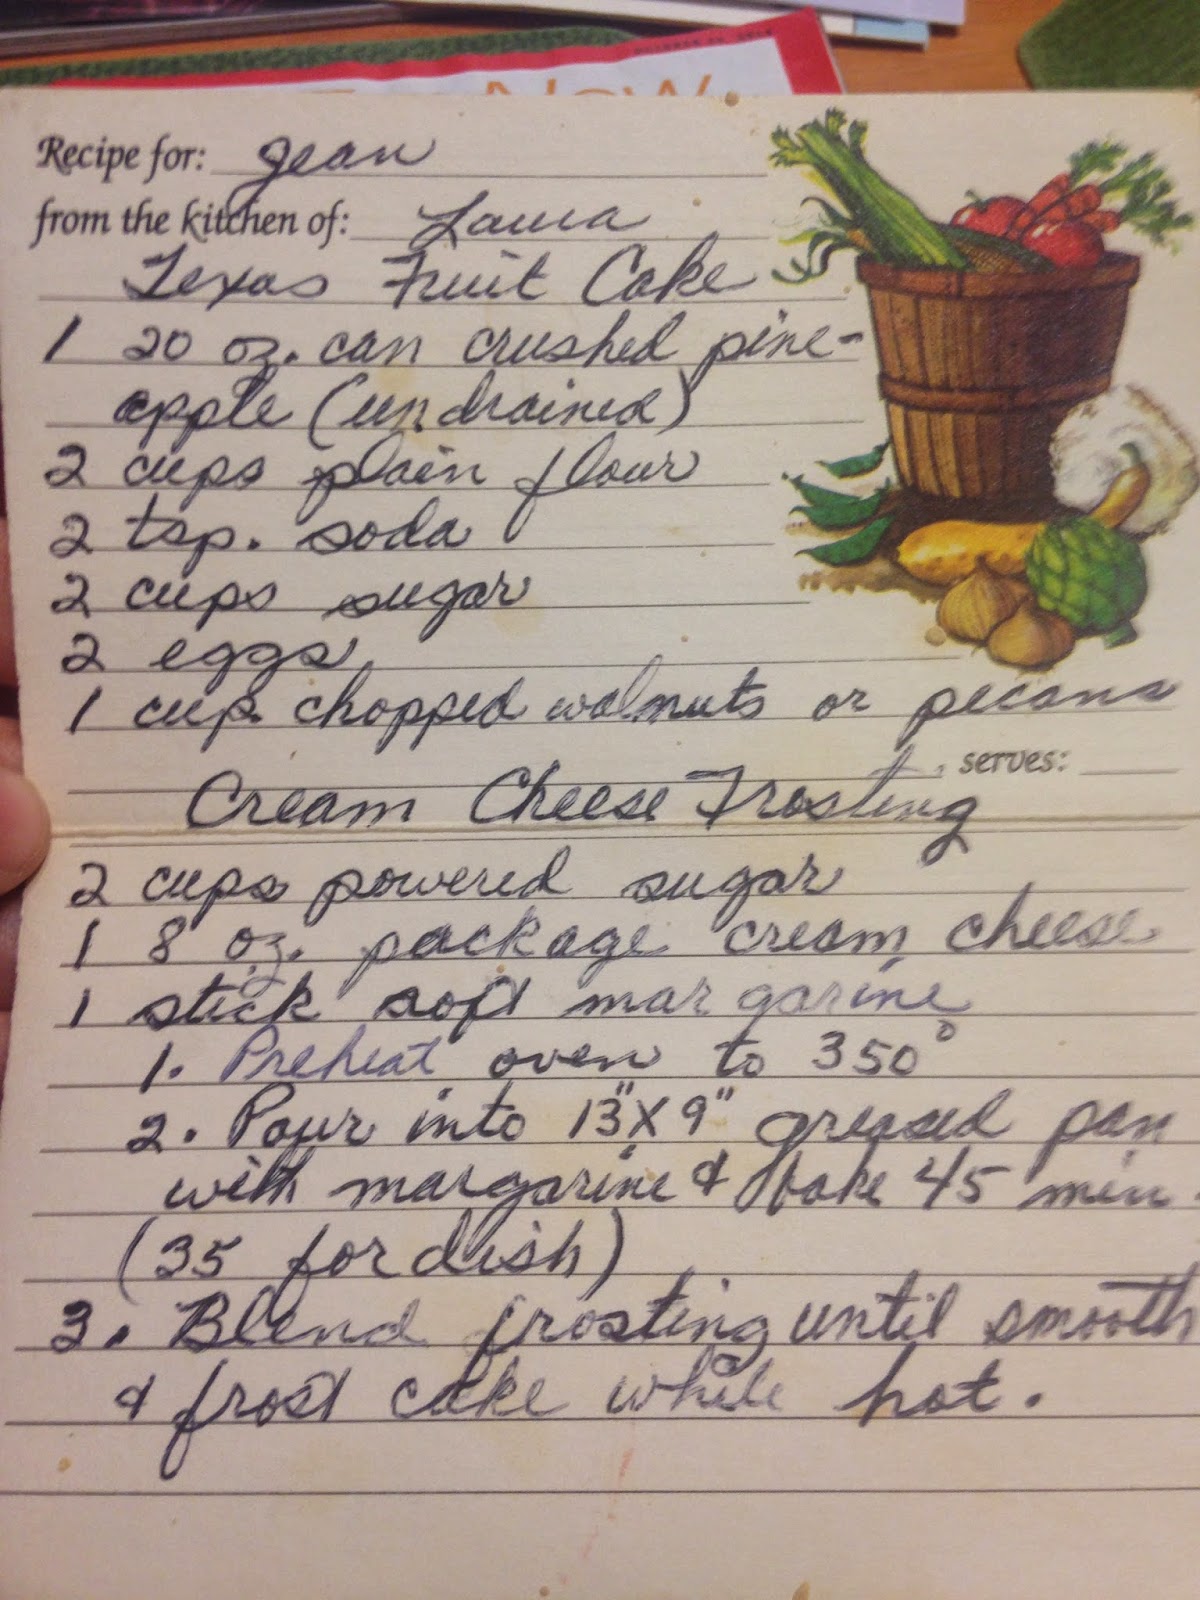 Now
Recipe for: Jean
from the kitchen of: Laura
Texas Fruit Cake
1 20 oz. can crushed pine-
apple (undrained)
2 cups plain flour
2 tsp. soda
2 cups sugar
2 eggs
1 cup chopped walnuts or pecans
serves:
Cream Cheese Frosting
2 cups powered sugar
1 8 oz. package cream cheese
1 stick soft margarine
1. Preheat oven to 350°
2. Pour into 13"X 9" greased pan
with margarine & bake 45 min.
(35 for dish)
3. Blend frosting until smooth
& frost cake while hot.